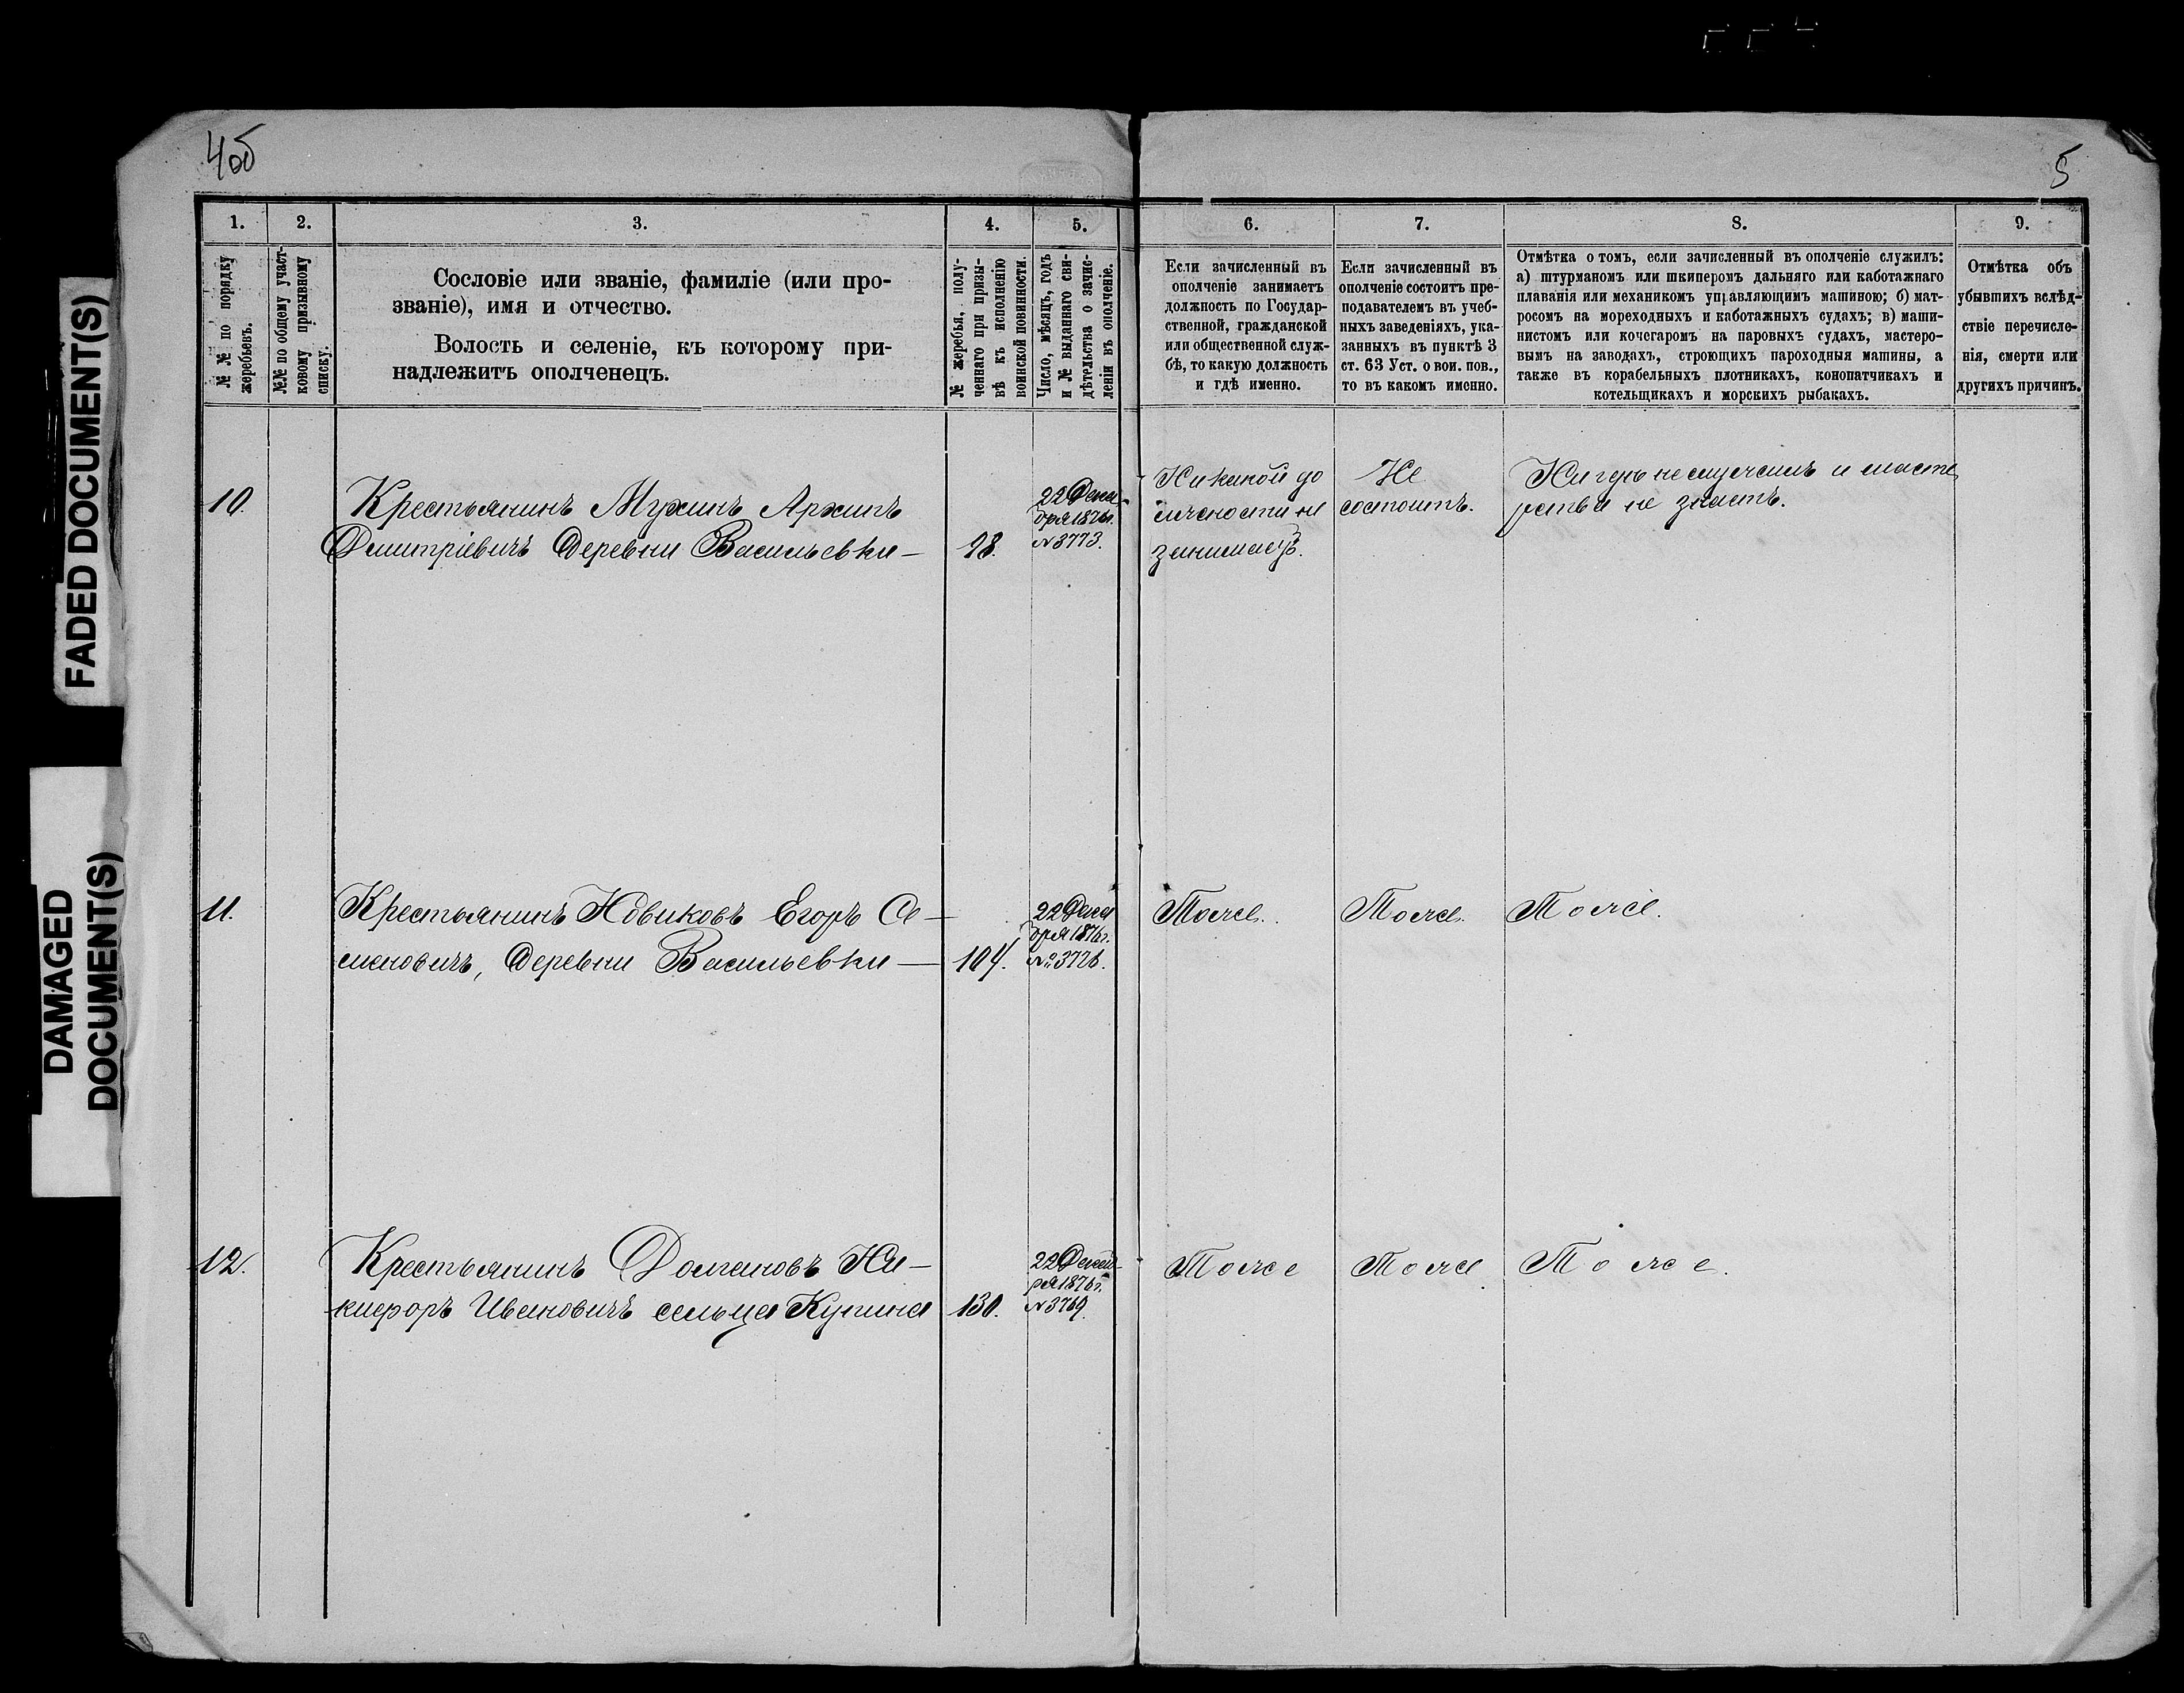 4об
5
FADED DOCUMENT(S)
DAMAGED
DOCUMENT(S)
1.
2.
3.
4.
5.
6.
7.
8.
9.
№ № по порядку
жеребьевъ.
№№ по общему участ-
ковому призывному
списку.
Сословіе или званіе, фамиліе (или про-
званіе), имя и отчество.
Волость и селеніе, къ которому при-
надлежитъ ополченецъ.
№ жеребья, полу-
ченнаго при призы-
вѣ къ исполненію
воинской повинности.
Число, мѣсяцъ, годъ
и № выданнаго сви-
дѣтельства о зачис-
леніи въ ополченіе.
Если зачисленный въ
ополченіе занимаетъ
должность по Государ-
ственной, гражданской
или общественной служ-
бѣ, то какую должность
и гдѣ именно.
Если зачисленный въ
ополченіе состоитъ пре-
подавателемъ въ учеб-
ныхъ заведеніяхъ, ука-
занныхъ въ пунктѣ 3
ст. 63 Уст. о вои. пов.,
то въ какомъ именно.
Отмѣтка о томъ, если зачисленный въ ополченіе служилъ:
а) штурманомъ или шкиперомъ дальняго или каботажнаго
плаванія или механикомъ управляющимъ машиною; б) мат-
росомъ на мореходныхъ и каботажныхъ судахъ; в) маши-
нистомъ или кочегаромъ на паровыхъ судахъ, мастеро-
вымъ на заводахъ, строющихъ пароходныя машины, а
также въ корабельныхъ плотникахъ, конопатчикахъ и
котельщикахъ и морскихъ рыбакахъ.
Отмѣтка объ
убывшихъ вслѣд-
ствіе перечисле-
нія, смерти или
другихъ причинъ.
10.
Крестьянинъ Мухинъ Архипъ
Дмитріевичъ Деревни Васильевки—
98.
22 Декаб-
бря 1876г.
№ 3773.
Никакой до
лжности не
занимаетъ.
Не
состоитъ.
Нигдѣ не служилъ и масте
рства не знаетъ.
11.
Крестьянинъ Новиковъ Егоръ Се—
меновичъ, Деревни Васильевки—
104.
22 Дека
бря 1876г.
№ 3726.
Тоже.
Тоже.
Тоже.
12.
Крестьянинъ Долгановъ Ни—
кифоръ Ивановичъ сельца Купина
130.
22 Декаб-
ря 1876г.
№ 3769.
Тоже
Тоже
Тоже.